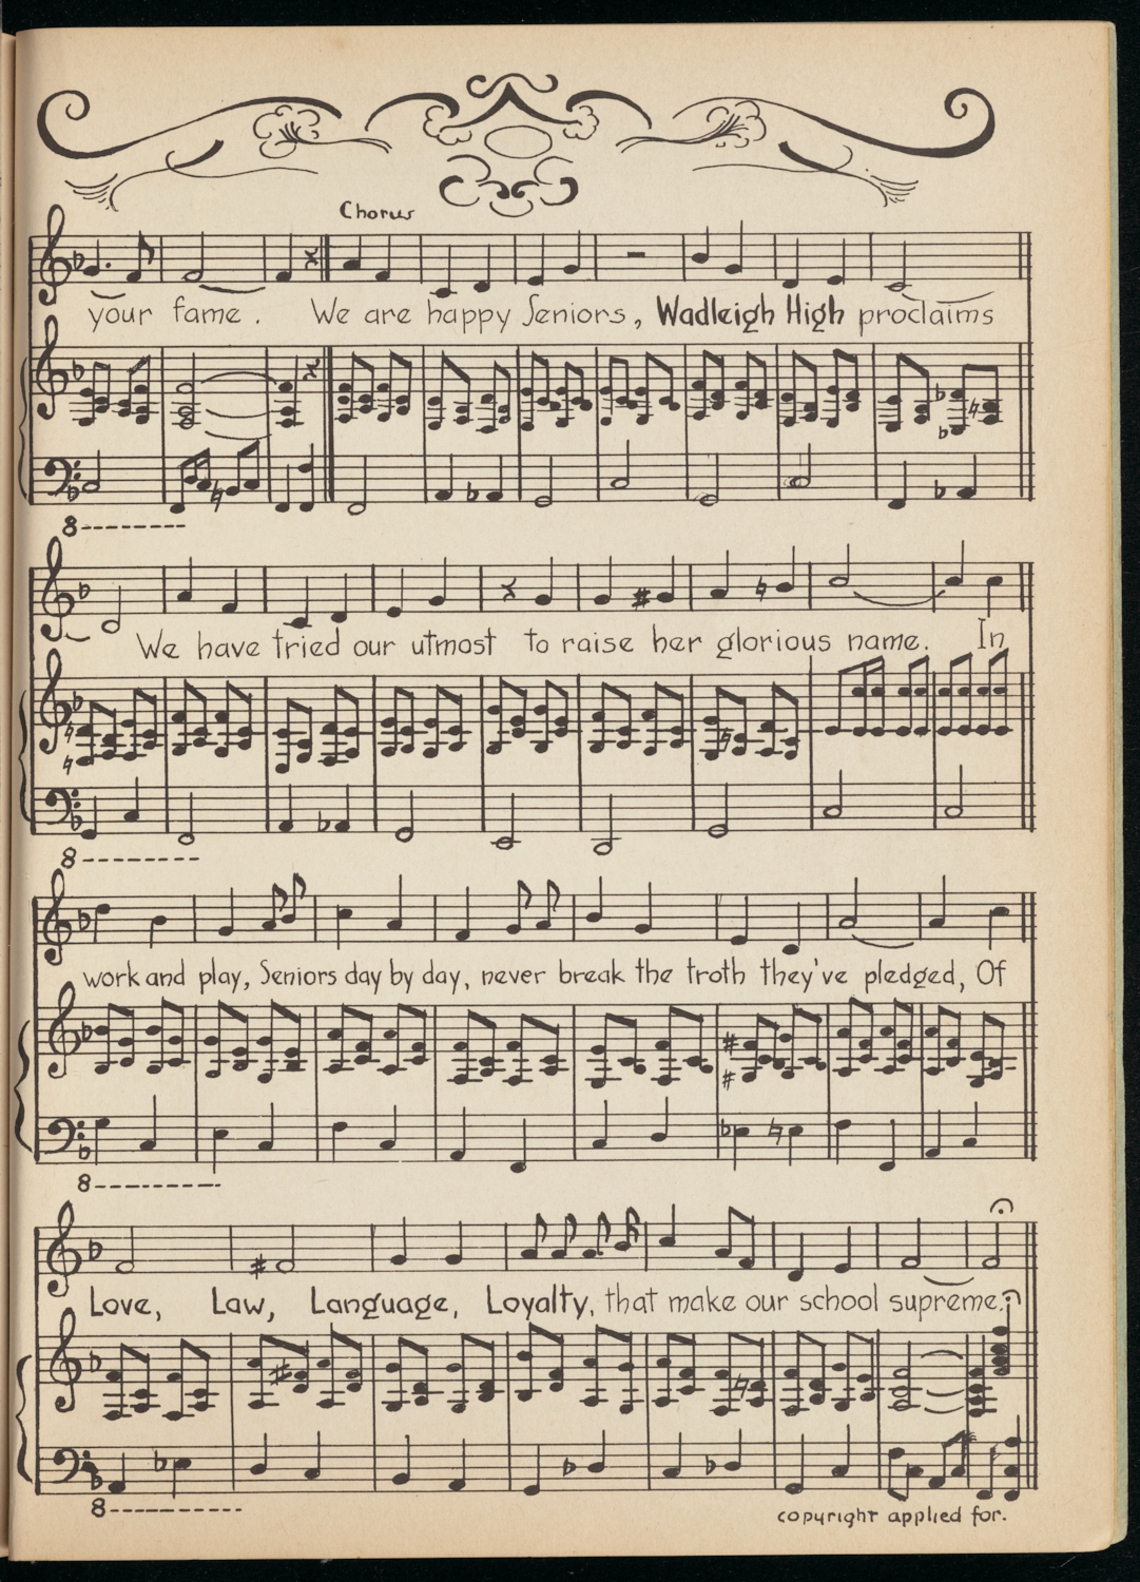 Chorus
your fame. We are happy Seniors, Wadleigh High proclaims
8
We have tried our utmost to raise her glorious name. In
8
work and play, Seniors day by day, never break the troth they've pledged, Of
8
Love, Law, Language, Loyalty, that make our school supreme.
8
copyright applied for.